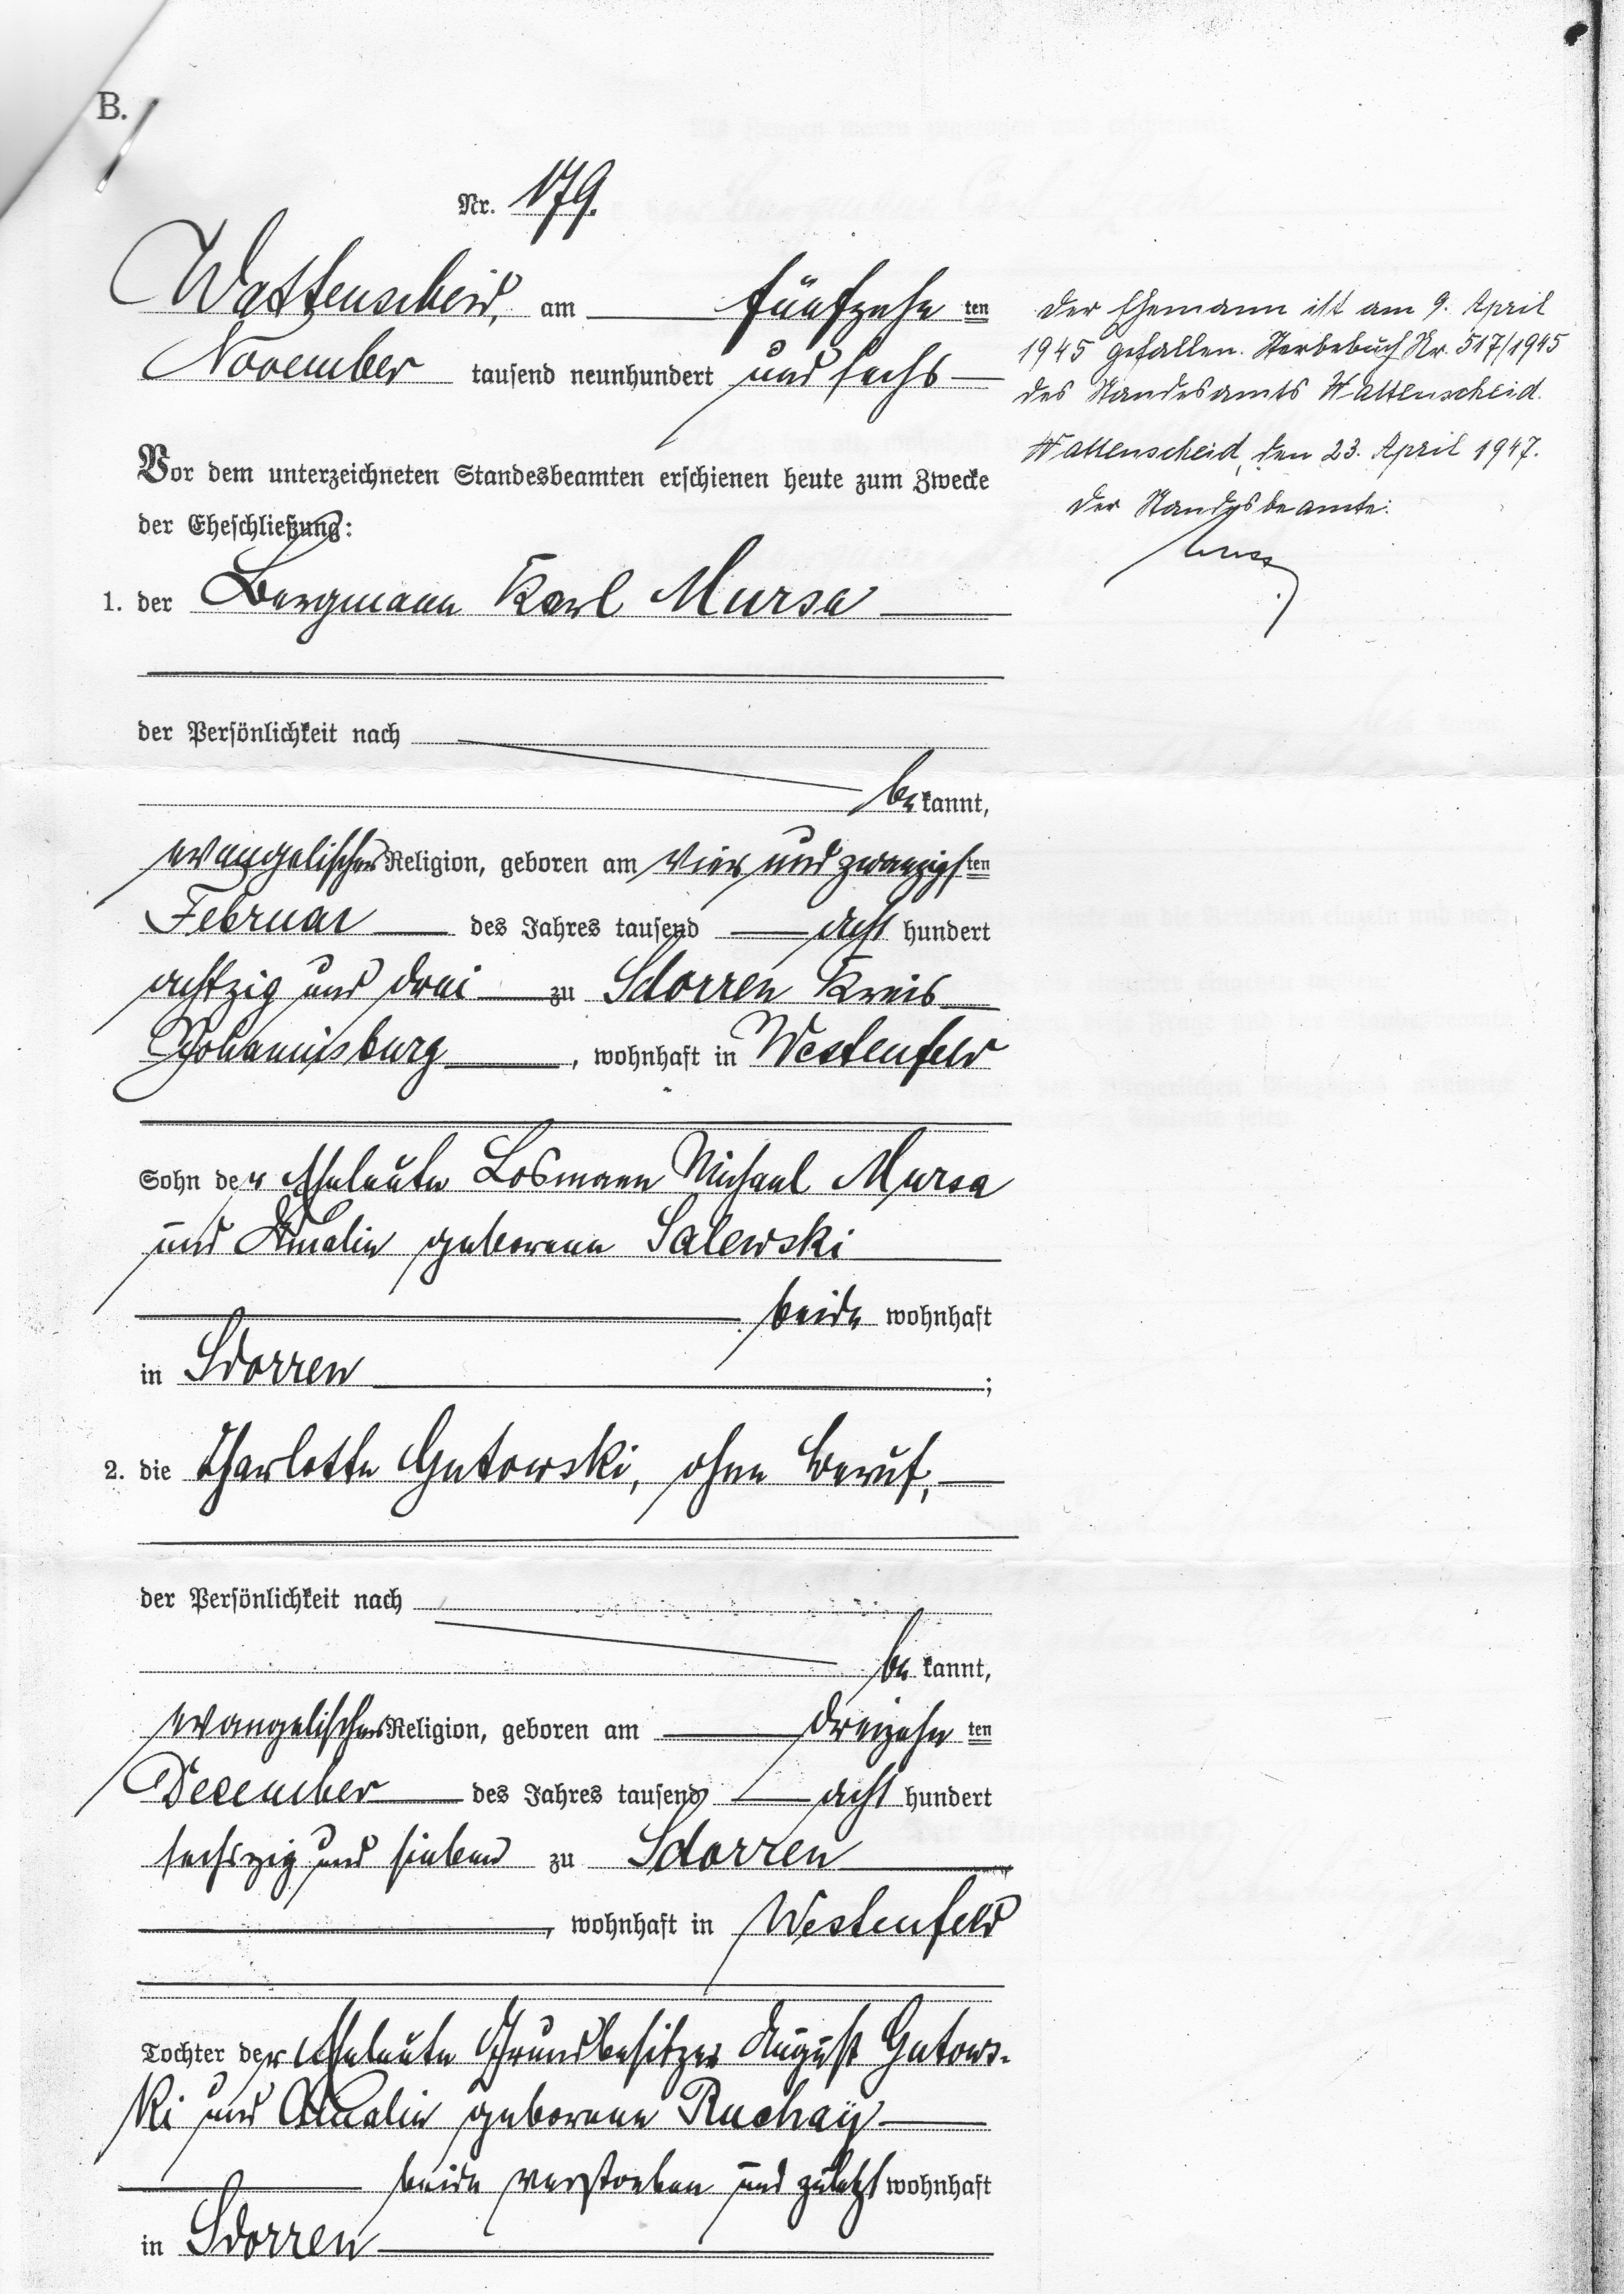 B.
Nr. 179.
Wattenscheid, am fünfzehn ten
November tausend neunhundert und sechs
Vor dem unterzeichneten Standesbeamten erschienen heute zum Zwecke
der Eheschließung:
1. der Bergmann Karl Mursa
der Persönlichkeit nach
be kannt,
evangelischer Religion, geboren am vier und zwanzigsten
Februar des Jahres tausend acht hundert
achtzig und drei zu Sdorren Kreis
Johannisburg, wohnhaft in Westenfeld
Sohn der Eheleute Losmann Michael Mursa
und Amalie geborene Salewski
beide wohnhaft
in Sdorren;
2. die Charlotte Gutowski, ohne Beruf,
der Persönlichkeit nach
be kannt,
evangelischer Religion, geboren am dreizehn ten
Dezember des Jahres tausend acht hundert
sechszig und sieben zu Sdorren
, wohnhaft in Westenfeld
Tochter der Eheleute Grundbesitzer August Gutows-
ki und Amalie geborene Ruchay
beide verstorben und zuletzt wohnhaft
in Sdorren
Der Ehemann ist am 9. April
1945 gefallen. Sterbebuch Nr. 517/1945
des Standesamts Wattenscheid.
Wattenscheid, den 23. April 1947.
Der Standesbeamte: